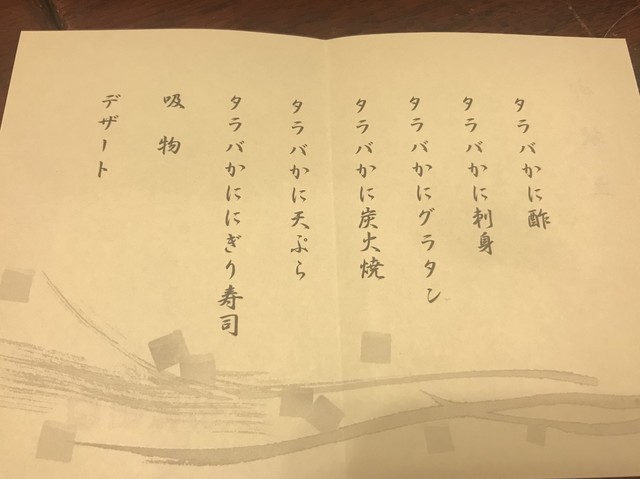 タラバかに酢
タラバかに刺身
タラバかにグラタン
タラバかに炭火焼
タラバかに天ぷら
タラバかににぎり寿司
吸物
デザート